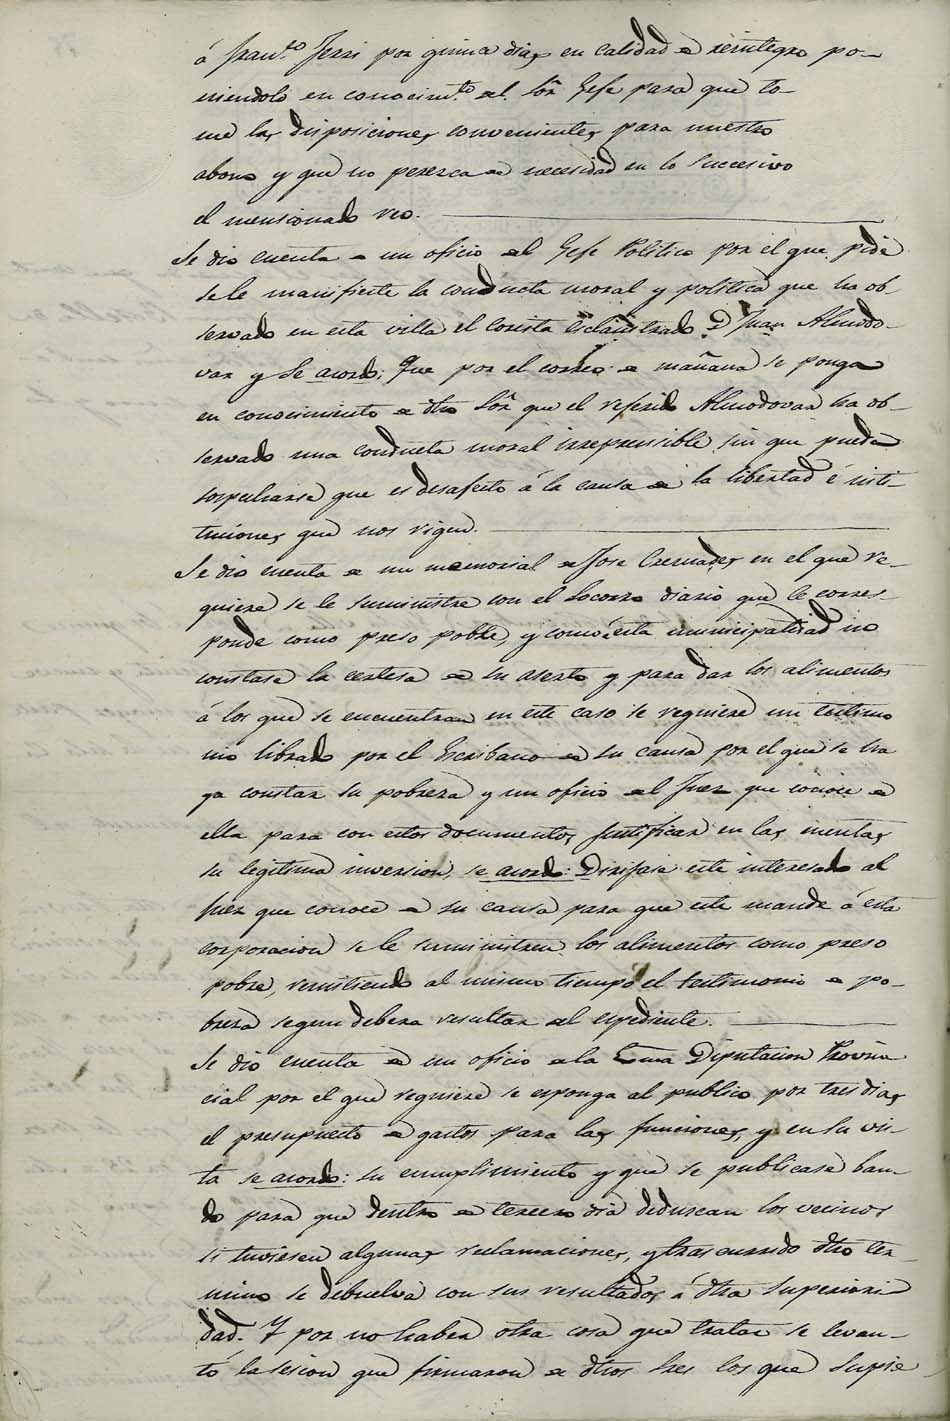 á Fran.co Ferri por quince dias en calidad de reintegro po-
niendolo en conocim.to del Sõr Gefe para que to-
me las disposiciones convenientes para nuestro
abono y que no perezca de necesidad en lo succesivo
el mensionado reo.
Se dio cuenta de un oficio del Gefe Politico por el que pide
se le manifieste la conducta moral y politica que ha ob-
servado en esta villa el Corista Esclaustrado D Juan Almodo-
var y se acordo: Que por el correo de mañana se ponga
en conocimiento de dho Sõr que el referido Almodovar ha ob-
servado una conducta moral irreprensible sin que pueda
sospecharse que es desafecto á la causa de la libertad é insti-
tuciones que nos rigen.
Se dio cuenta de un memorial de Jose Cremades en el que re-
quiere se le suministre con el socorro diario que le corres-
ponde como preso poble, y como á esta municipalidad no
constase la certesa de su aserto y para dar los alimentos
á los que se encuentran en este caso se requiere un testimo
nio librado por el Escribano de su causa por el que se ha
ga constar su pobreza y un oficio del Juez que conoce de
ella para con estos documentos justificar en las cuentas
su legitima inversion, se acordo: Dirijase este interesado al
Juez que conoce de su causa para que este mande á esta
corporacion se le suministren los alimentos como preso
pobre, remitiendo al mismo tiempo el testimonio de po-
breza segun debera resultar del espediente.
Se dio cuenta de un oficio de la Ecma Diputacion Provin
cial por el que requiere se esponga al publico por tres dias
el presupuesto de gastos para las funciones, y en su vis-
ta se acordo: su cumplimiento y que se publicase ban-
do para que dentro de tercero dia dedusean los vecinos
si tuviesen algunas reclamaciones, y trascurrido dho ter-
mino se debuelva con sus resultados á dha Superiori
dad. Y por no haber otra cosa que tratar se levan-
tó la sesion que firmaron de dhos Sres los que supie